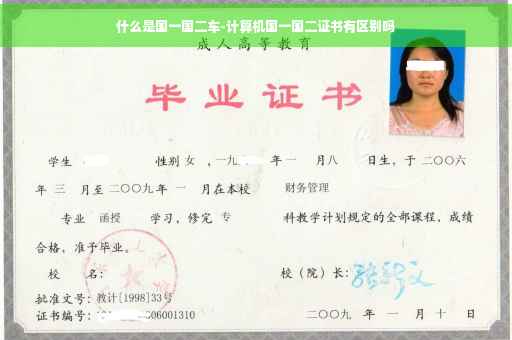 什么是国一国二车-计算机国一国二证书有区别吗
成人高等教育
毕业证书
学生 性别 女 ，一九 年 一 月八 日生，于 二〇〇六
年 三 月至 二〇〇九年 一 月在本校 财务管理
专业 函授 学习，修完 专 科教学计划规定的全部课程，成绩
合格，准予毕业。
校 名： 校（院）长：
批准文号：教计[1998]33号
证书编号： 06001310 二〇〇九 年 一 月 十 日